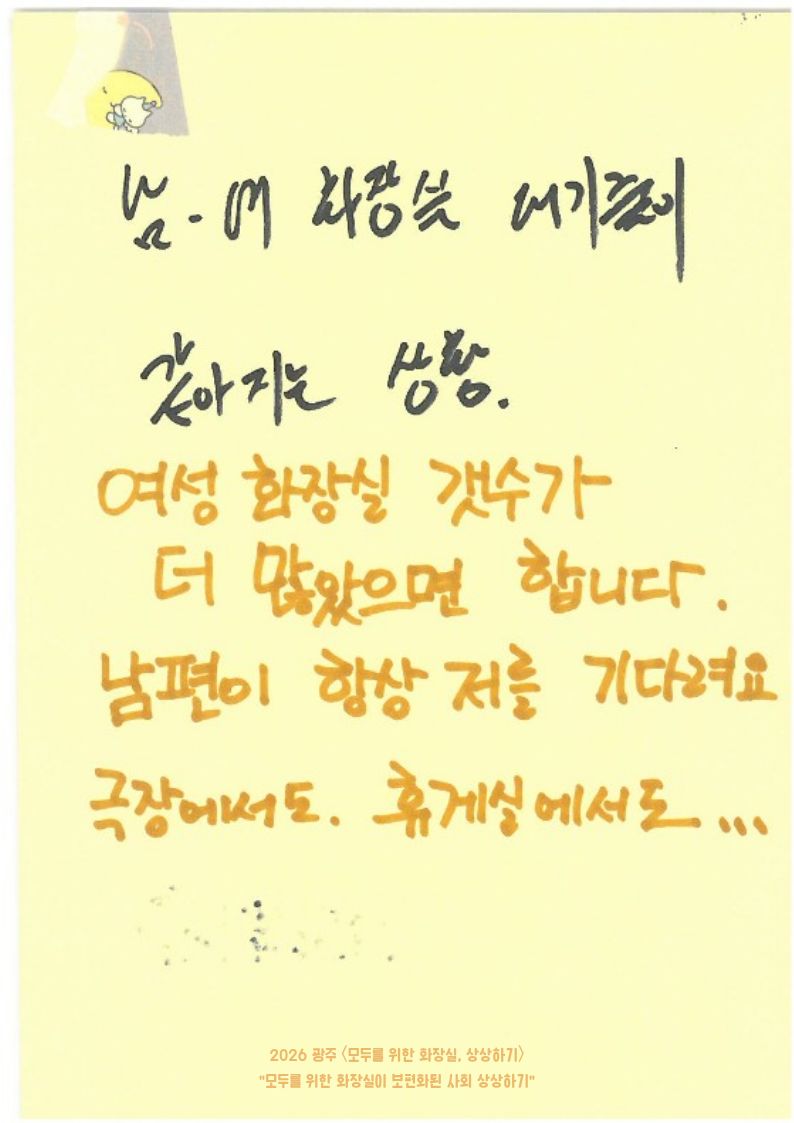 남-여 화장실 대기줄이
같아지는 상황.
여성 화장실 갯수가
더 많았으면 합니다.
남편이 항상 저를 기다려요
극장에서도. 휴게실에서도...
2026 광주 <모두를 위한 화장실, 상상하기>
"모두를 위한 화장실이 보편화된 사회 상상하기"